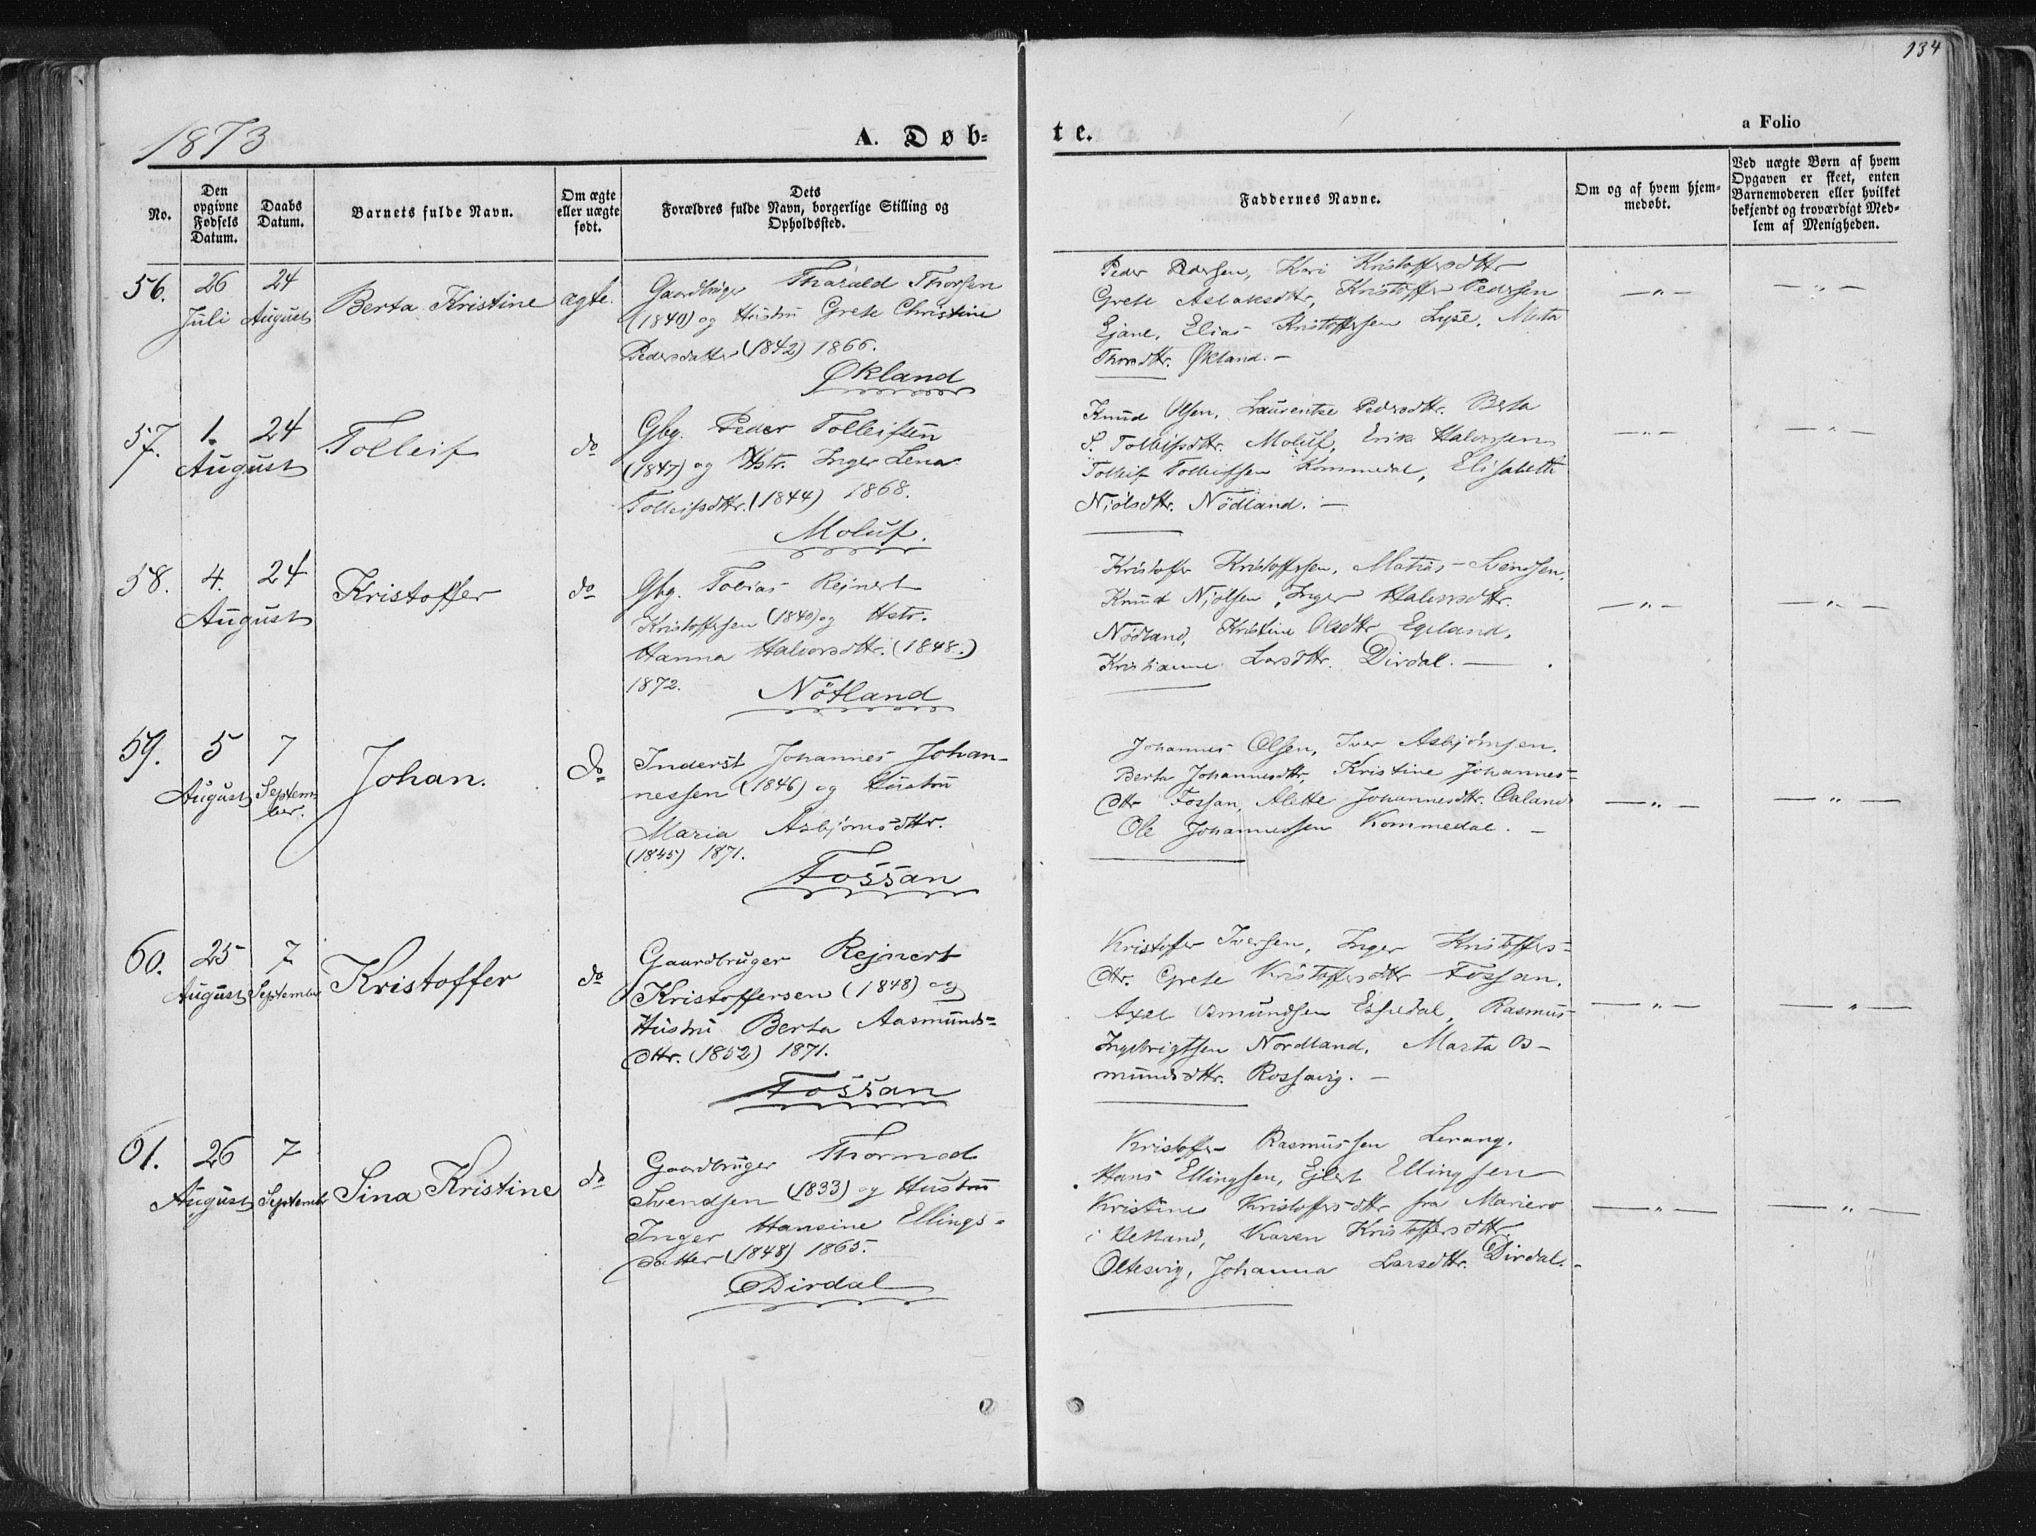 134
1873
A. Døb-
te.
a Folio
No.
Den
opgivne
Fødsels
Datum.
Daabs
Datum.
Barnets fulde Navn.
Om ægte
eller uægte
født.
Dets
Forældres fulde Navn, borgerlige Stilling og
Opholdssted.
Faddernes Navne.
Om og af hvem hjem-
medøbt.
Ved uægte Børn af hvem
Opgaven er skeet, enten
Barnemoderen eller hvilket
bekjendt og troværdigt Med-
lem af Menigheden.
56.
26
Juli
24
August
Berta Kristine
ægte.
Gaardbruger Tharald Thorsen
(1840) og Hustru Grete Christine
Pedersdatter (1842) 1866.
Økland
Peder Pedersen, Kari Kristoffersdttr
Grete Aslaksdttr, Kristoffer Pedersen
Ejane, Elias Kristoffersen Lyse, Meta
Thorsdttr. Økland. —
— „ —
— „ —
57.
1.
August
24
Tolleif
do
Gbg. Peder Tolleifsen
(1847) og Hstr. Inger Lena
Tolleifsdttr. (1844) 1868.
Moluf.
Knud Olsen, Laurentse Pedersdttr. Berta
S. Tolleifsdttr. Moluf, Erik Halvorsen
Tolleif Tolleifsen Kommedal, Elisabeth
Niølsdttr. Nödland. —
— „ —
— „ —
58.
4.
August
24
Kristoffer
do
Gbg. Tobias Rejnert
Kristoffersen (1840) og Hstr.
Hanna Halvorsdttr. (1848.)
1872.
Nötland
Kristoffer Kristoffersen, Matias Svendsen,
Knud Niølsen, Inger Halvorsdttr.
Nödland, Kristine Olsdttr Egeland,
Kristianne Larsdttr. Dirdal. —
— „ —
— „ —
59.
5
August
7
Septem-
ber.
Johan.
do
Inderst Johannes Johan-
nessen (1846) og Hustru
Maria Asbjörnsdttr.
(1845) 1871.
Fossan
Johannes Olsen, Iver Asbjörnsen,
Berta Johannesdttr, Kristine Johannes=
dttr Fossan, Alette Johannesdttr. Oaland
Ole Johannessen Kommedal. —
— „ —
— „ —
60.
25
August
7
September
Kristoffer
do
Gaardbruger Rejnert
Kristoffersen (1848) og
Hustru Berta Aasmunds=
dttr. (1852) 1871.
Fossan
Kristoffer Iversen, Inger Kristoffers=
dttr. Grete Kristoffersdttr Fossan,
Axel Osmundsen Espedal, Rasmus
Ingebrigtsen Nordland, Marta Os-
mundsdttr. Rossavig. —
— „ —
— „ —
61.
26
August
7
September
Sina Kristine
do
Gaardbruger Thormod
Svendsen (1833) og Hustru
Inger Hansine Ellings=
datter (1848) 1865.
Dirdal
Kristoffer Rasmussen Lerang.
Hans Ellingsen, Ejlert Ellingsen
Kristine Kristoffersdttr fra Mariero
i Hetland, Karen Kristoffersdttr
Oltesvig, Johanna Larsdttr. Dirdal. —
— „ —
— „ —